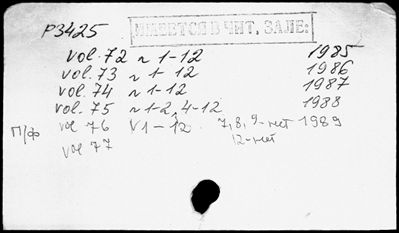 P3425
ИМЕЕТСЯ В ЧИТ. ЗАЛЕ:
vol. 72 n 1-12 1985
vol. 73 n 1-12 1986
vol. 74 n 1-12 1987
vol. 75 n 1-2, 4-12 1988
п/ф vol 76 V 1-12. 7,8,9-нет 1989
12-нет
vol 77